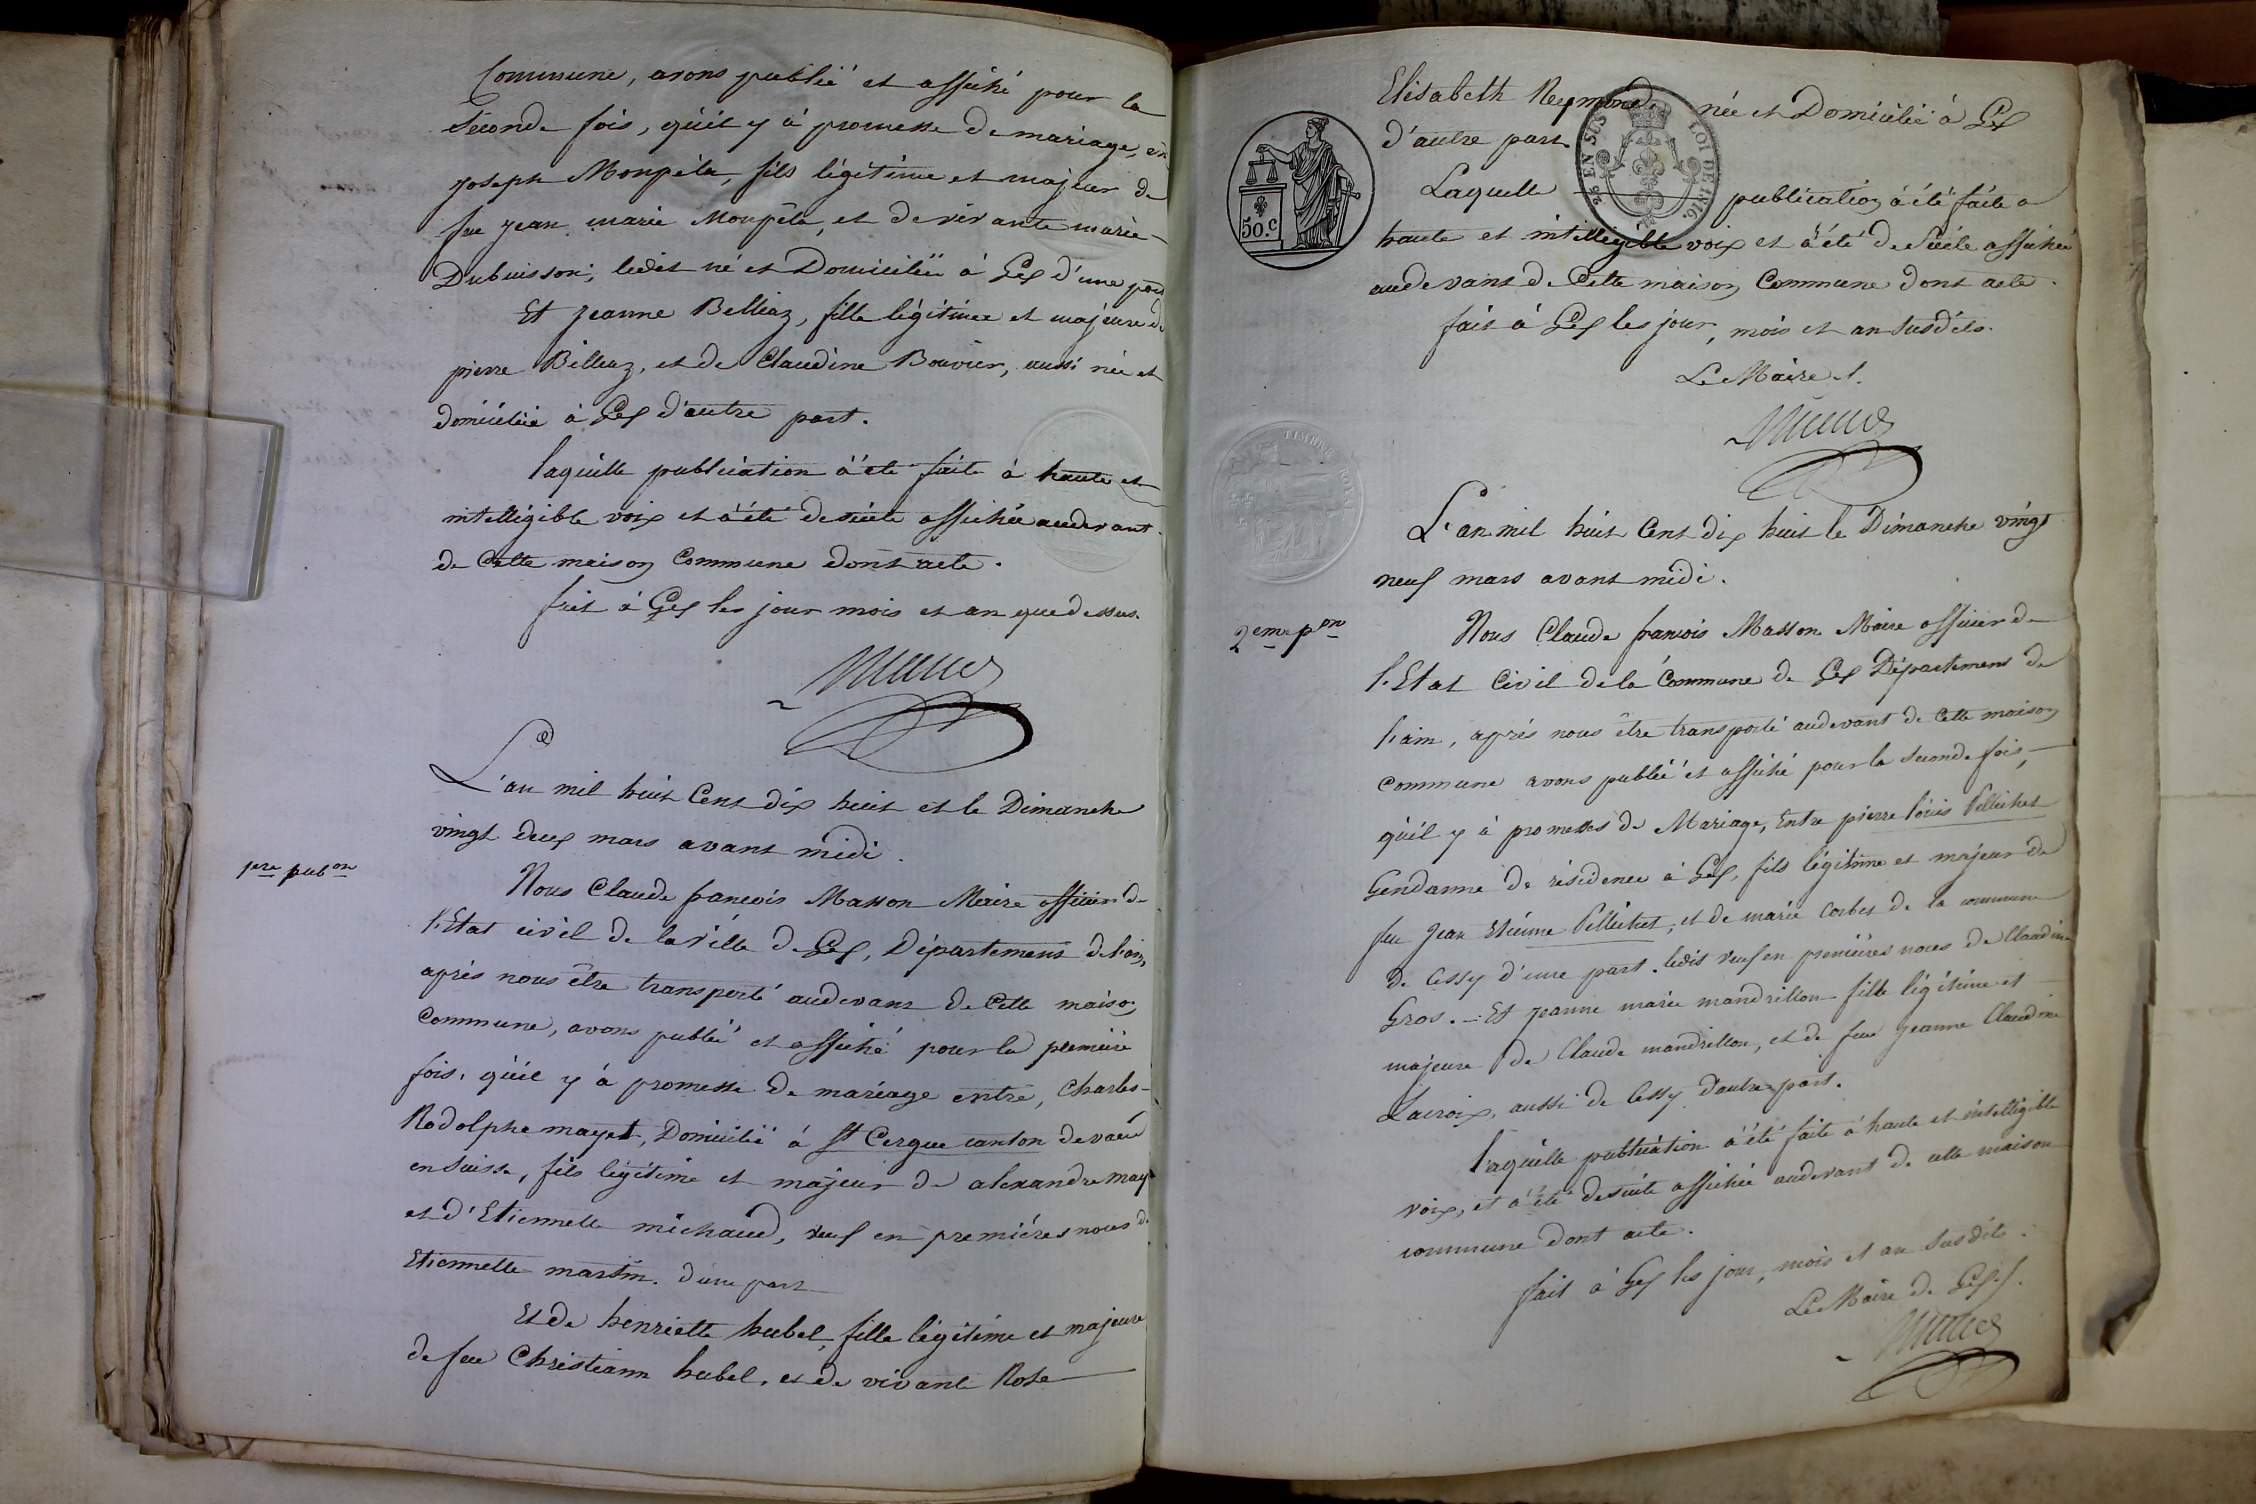 Commune, avons publié et affiché pour la
Seconde fois, qu'il y à promesse de mariage, en
Joseph Monpéla, fils légitime et majeur de
feu jean marie Monpéla, et de vivante marie
Dubuisson, ledit né et Domicilié à Gex d'une part
Et Jeanne Belleaz, fille légitime et majeure de
pierre Belleaz, et de Claudine Bouvier, aussi née et
domiciliée à Gex d'autre part.
laquelle publication à été faite à haute et
intelligible voix et à été de suite affichée audevant
de Cette maison Commune dont acte.
fait à Gex les jour mois et an que dessus.
L'an mil huit Cent dix huit et le Dimanche
vingt deux mars avant midi.
1re pubon
Nous Claude françois Masson Maire officier de
l'Etat civil de la ville de Gex, Département de l'ain,
après nous être transporté audevant de Cette maison
Commune, avons publié et affiché pour la premiere
fois, qu'il y à promesse de mariage entre, Charles
Rodolphe mayet, Domicilié à St Cergue canton de vaud
en Suisse, fils légitime et majeur de alexandre may
et d'Etiennette michaud, veuf en premiéres noces de
Etiennette martin. d'une part
Et de henriette hubel, fille légitime et majeure
de feu Christiann hubel, et de vivante Rose
Elisabeth Reymond, née et Domiciliée à Gex
d'autre part.
2s EN SUS LOI DE 1816.
50.c
Laquelle publication à été faite a
haute et intelligible voix et à été de Suite affichée
audevant de Cette maison Commune dont acte.
fait à Gex les jour, mois et an susdits.
Le Maire
TIMBRE ROYAL
L'an mil huit Cent dix huit le Dimanche vingt
neuf mars avant midi.
2eme pon
Nous Claude françois Masson Maire officier de
l'Etat Civil de la Commune de Gex Département de
l'ain, après nous être transporté audevant de Cette maison
Commune avons publié et affiché pour la seconde fois,
qu'il y à promesses de Mariage, Entre pierre Louis Pellichet
Gendarme de résidence à Gex, fils légitime et majeur de
feu Jean Etiénne Pellichet, et de marie Corbet de la commune
de Cessy d'une part. ledit veuf en premières noces de Claudine
Gros. Et jeanne marie mandrillon fille légitime et
majeure de Claude mandrillon, et de feue jeanne Claudine
Lacroix, aussi de Cessy d'autre part.
Laquelle publication à été faite à haute et intelligible
voix, et à été de suite affichée audevant de cette maison
commune dont acte.
fait à Gex les jour, mois et an susdits.
Le Maire de Gex